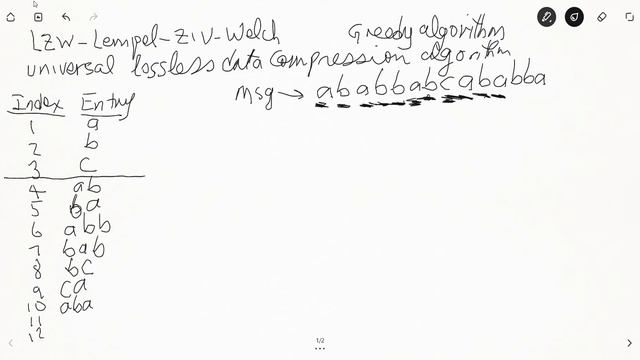 LZW-Lempel-Ziv-Welch
Greedy algorithm
universal lossless data compression algorithm
Msg → ababbabcababba
Index Entry
1 a
2 b
3 c
4 ab
5 ba
6 abb
7 bab
8 bc
9 ca
10 aba
11
12
1/2